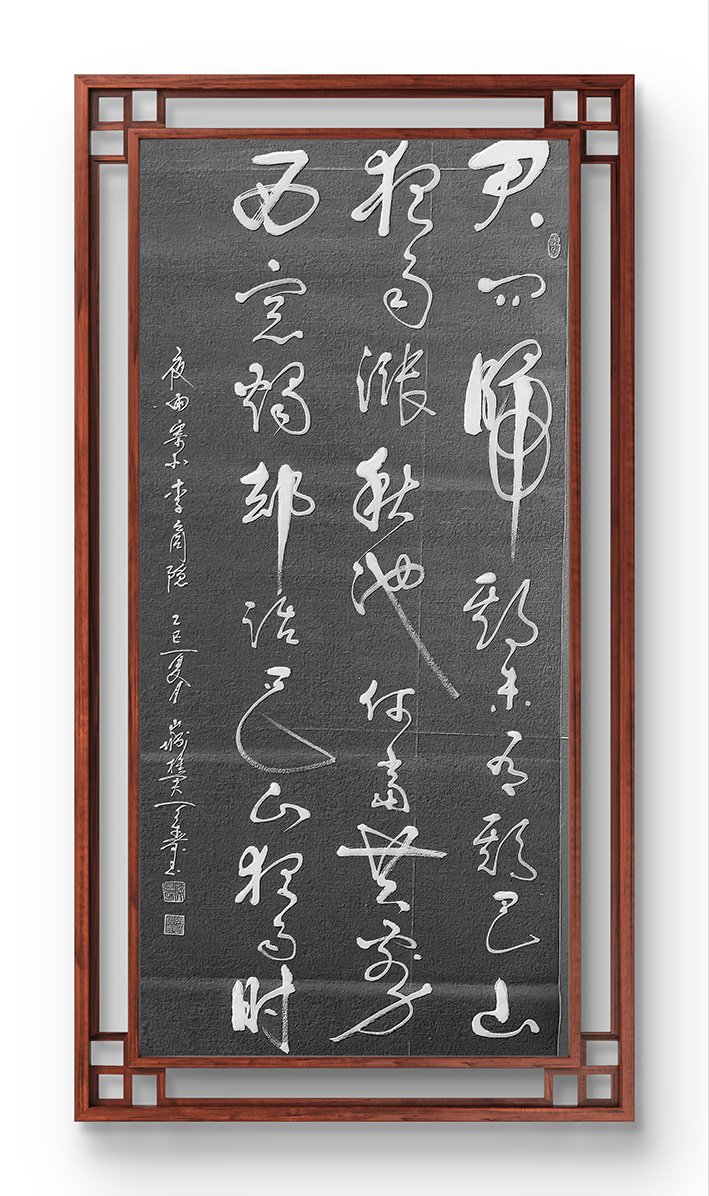 君问归期未有期巴山
夜雨涨秋池何当共剪
西窗烛却话巴山夜雨时
夜雨寄北李商隐乙巳夏月山城